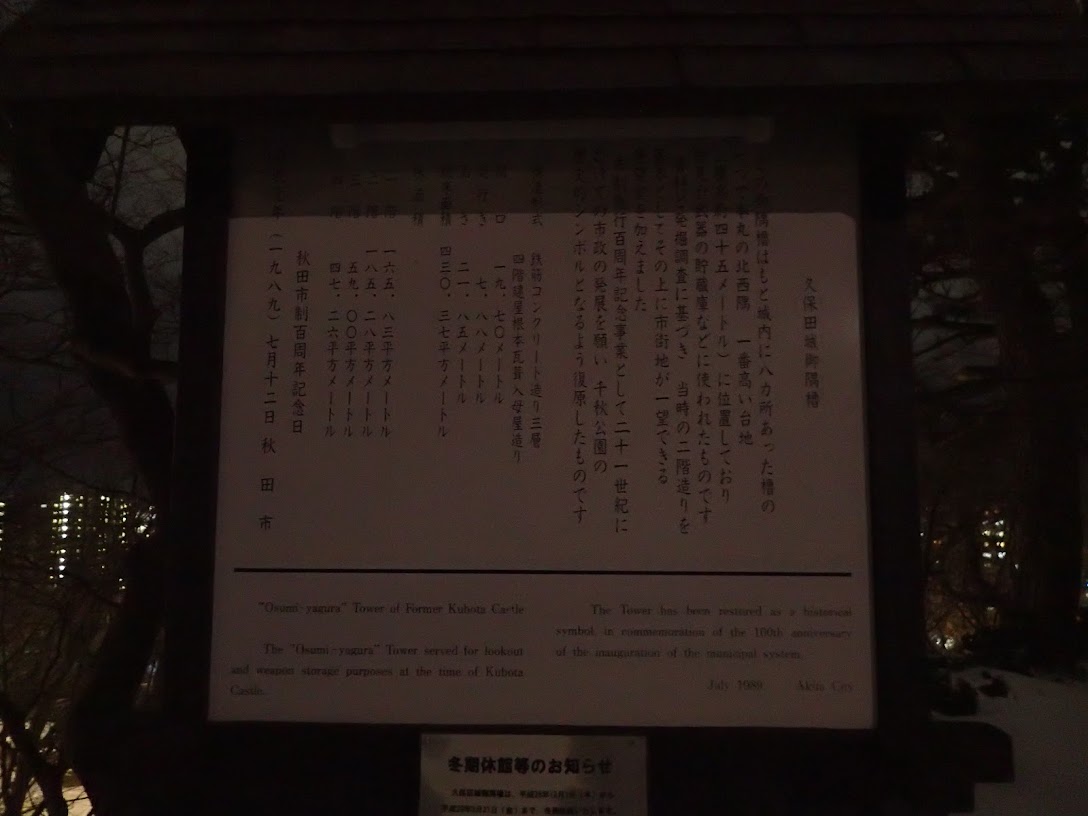 久保田城御隅櫓
御隅櫓はもと城内に八カ所あった櫓の
で本丸の北西隅 一番高い台地
四十五メートル）に位置しており
武器の貯蔵庫などに使われたものです
発掘調査に基づき 当時の二階造りを
としてその上に市街地が一望できる
加えました
行百周年記念事業として二十一世紀に
の市政の発展を願い 千秋公園の
シンボルとなるよう復原したものです
鉄筋コンクリート造り三層
四階建屋根本瓦葺入母屋造り
口 一九・七〇メートル
行き 七・八八メートル
さ 二一・八五メートル
面積 四三〇・三七平方メートル
面積
一階 一六五・八三平方メートル
二階 一八五・二八平方メートル
三階 五九・〇〇平方メートル
四階 四七・二六平方メートル
秋田市制百周年記念日
年（一九八九）七月十二日 秋田市
"Osumi-yagura" Tower of Former Kubota Castle
The "Osumi-yagura" Tower served for lookout
and weapon storage purposes at the time of Kubota
Castle.
The Tower has been restored as a historical
symbol, in commemoration of the 100th anniversary
of the inauguration of the municipal system.
July 1989 Akita City
冬期休館等のお知らせ